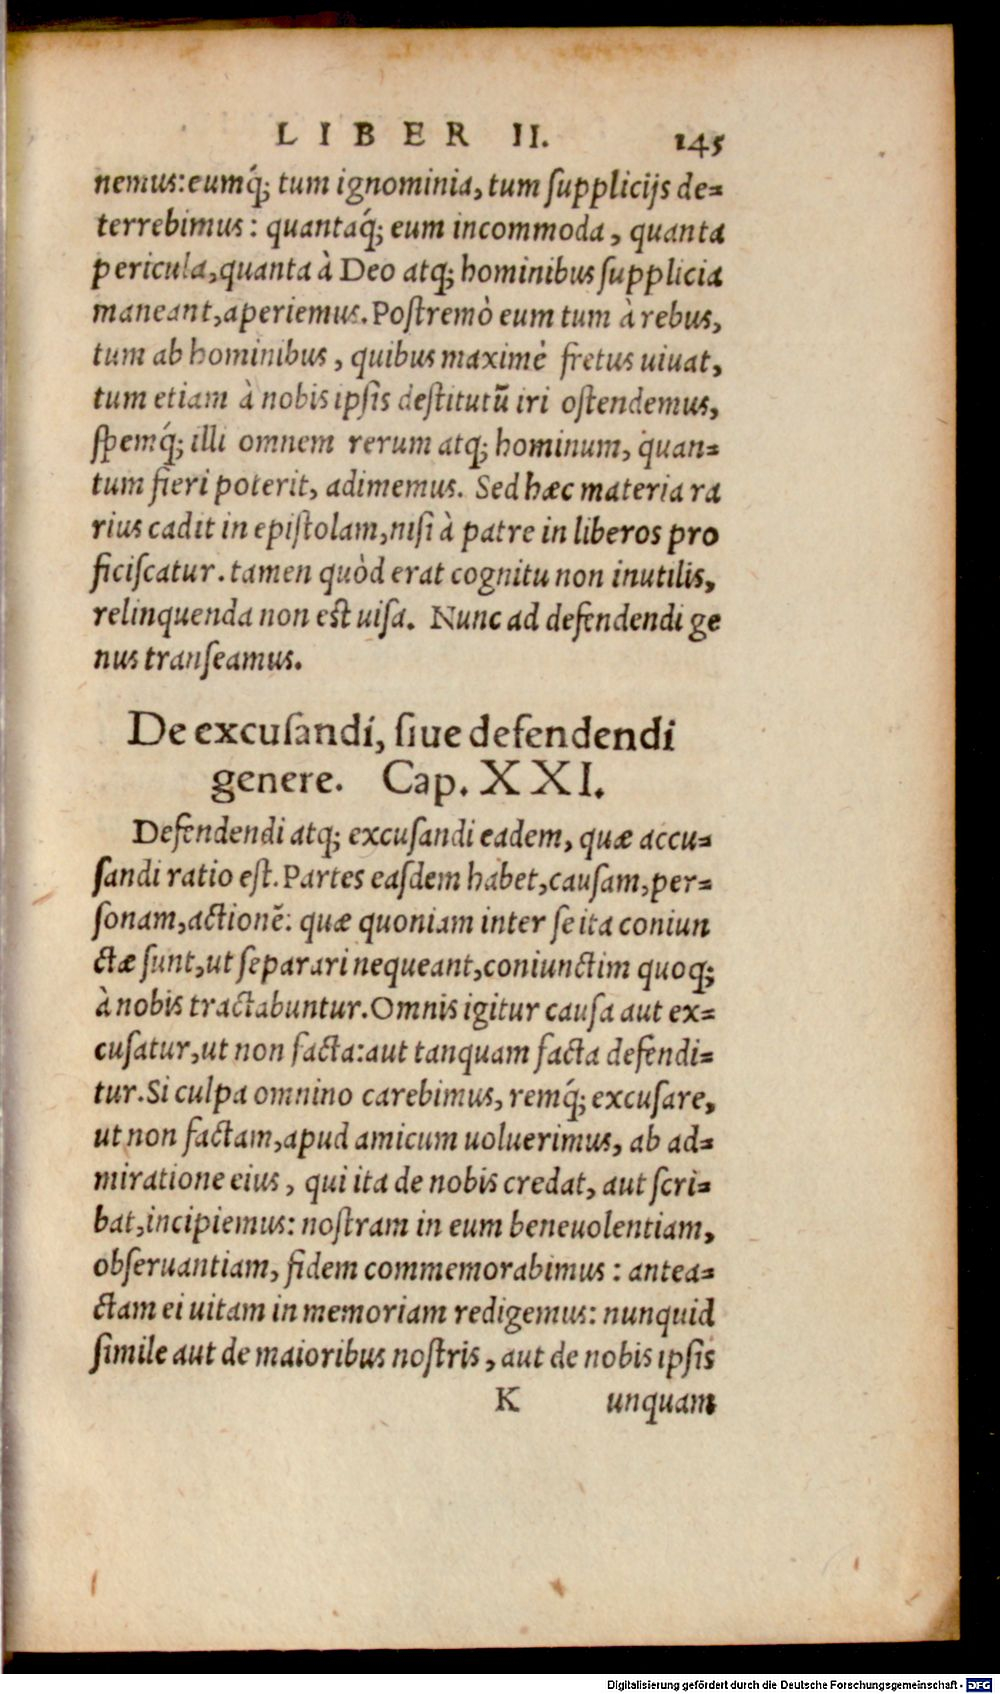 LIBER II. 145
nemus: eumq́; tum ignominia, tum supplicijs de-
terrebimus: quantaq́; eum incommoda, quanta
pericula, quanta à Deo atq; hominibus supplicia
maneant, aperiemus. Postremò eum tum à rebus,
tum ab hominibus, quibus maximè fretus uiuat,
tum etiam à nobis ipsis destitutū iri ostendemus,
spemq́; illi omnem rerum atq; hominum, quan-
tum fieri poterit, adimemus. Sed hæc materia ra
rius cadit in epistolam, nisi à patre in liberos pro
ficiscatur. tamen quòd erat cognitu non inutilis,
relinquenda non est uisa. Nunc ad defendendi ge
nus transeamus.
De excusandi, siue defendendi
genere. Cap. XXI.
Defendendi atq; excusandi eadem, quæ accu-
sandi ratio est. Partes easdem habet, causam, per-
sonam, actionē: quæ quoniam inter se ita coniun
ctæ sunt, ut separari nequeant, coniunctim quoq;
à nobis tractabuntur. Omnis igitur causa aut ex-
cusatur, ut non facta: aut tanquam facta defendi-
tur. Si culpa omnino carebimus, remq́; excusare,
ut non factam, apud amicum uoluerimus, ab ad-
miratione eius, qui ita de nobis credat, aut scri-
bat, incipiemus: nostram in eum beneuolentiam,
obseruantiam, fidem commemorabimus: antea-
ctam ei uitam in memoriam redigemus: nunquid
simile aut de maioribus nostris, aut de nobis ipsis
K unquam
Digitalisierung gefördert durch die Deutsche Forschungsgemeinschaft - DFG